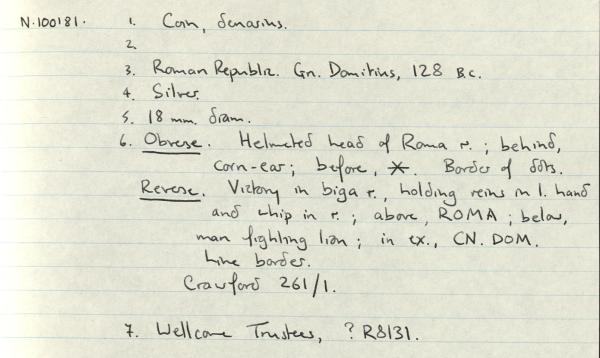 N.100181. 1. Coin, denarius.
2.
3. Roman Republic. Gn. Domitius, 128 B.C.
4. Silver.
5. 18 mm. diam.
6. Obverse. Helmeted head of Roma r.; behind,
corn-ear; before, X. Border of dots.
Reverse. Victory in biga r., holding reins in l. hand
and whip in r.; above, ROMA; below,
man fighting lion; in ex., CN. DOM.
Line border.
Crawford 261/1.
7. Wellcome Trustees, ? R8131.